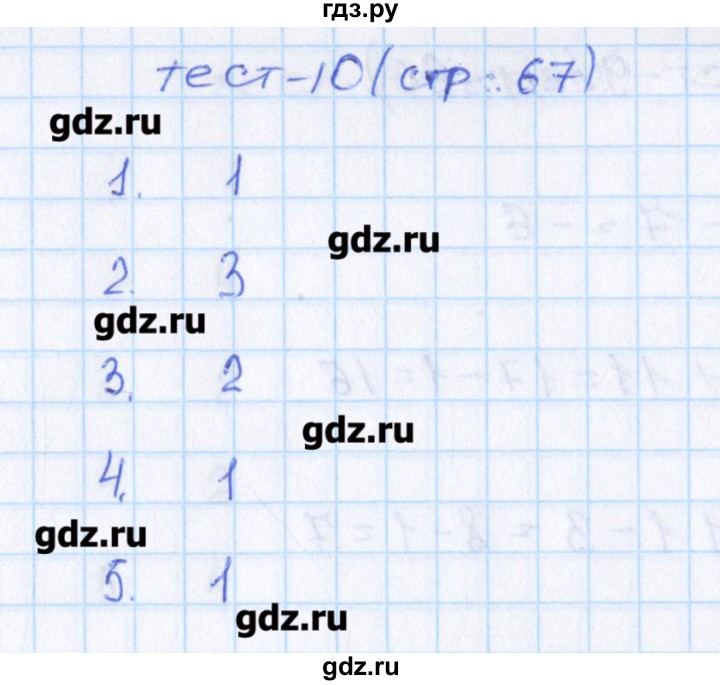 гдз.ру
тест-10 (стр. 67)
gdz.ru
1. 1
gdz.ru
2. 3
gdz.ru
3. 2
gdz.ru
4. 1
gdz.ru
5. 1
gdz.ru
gdz.ru